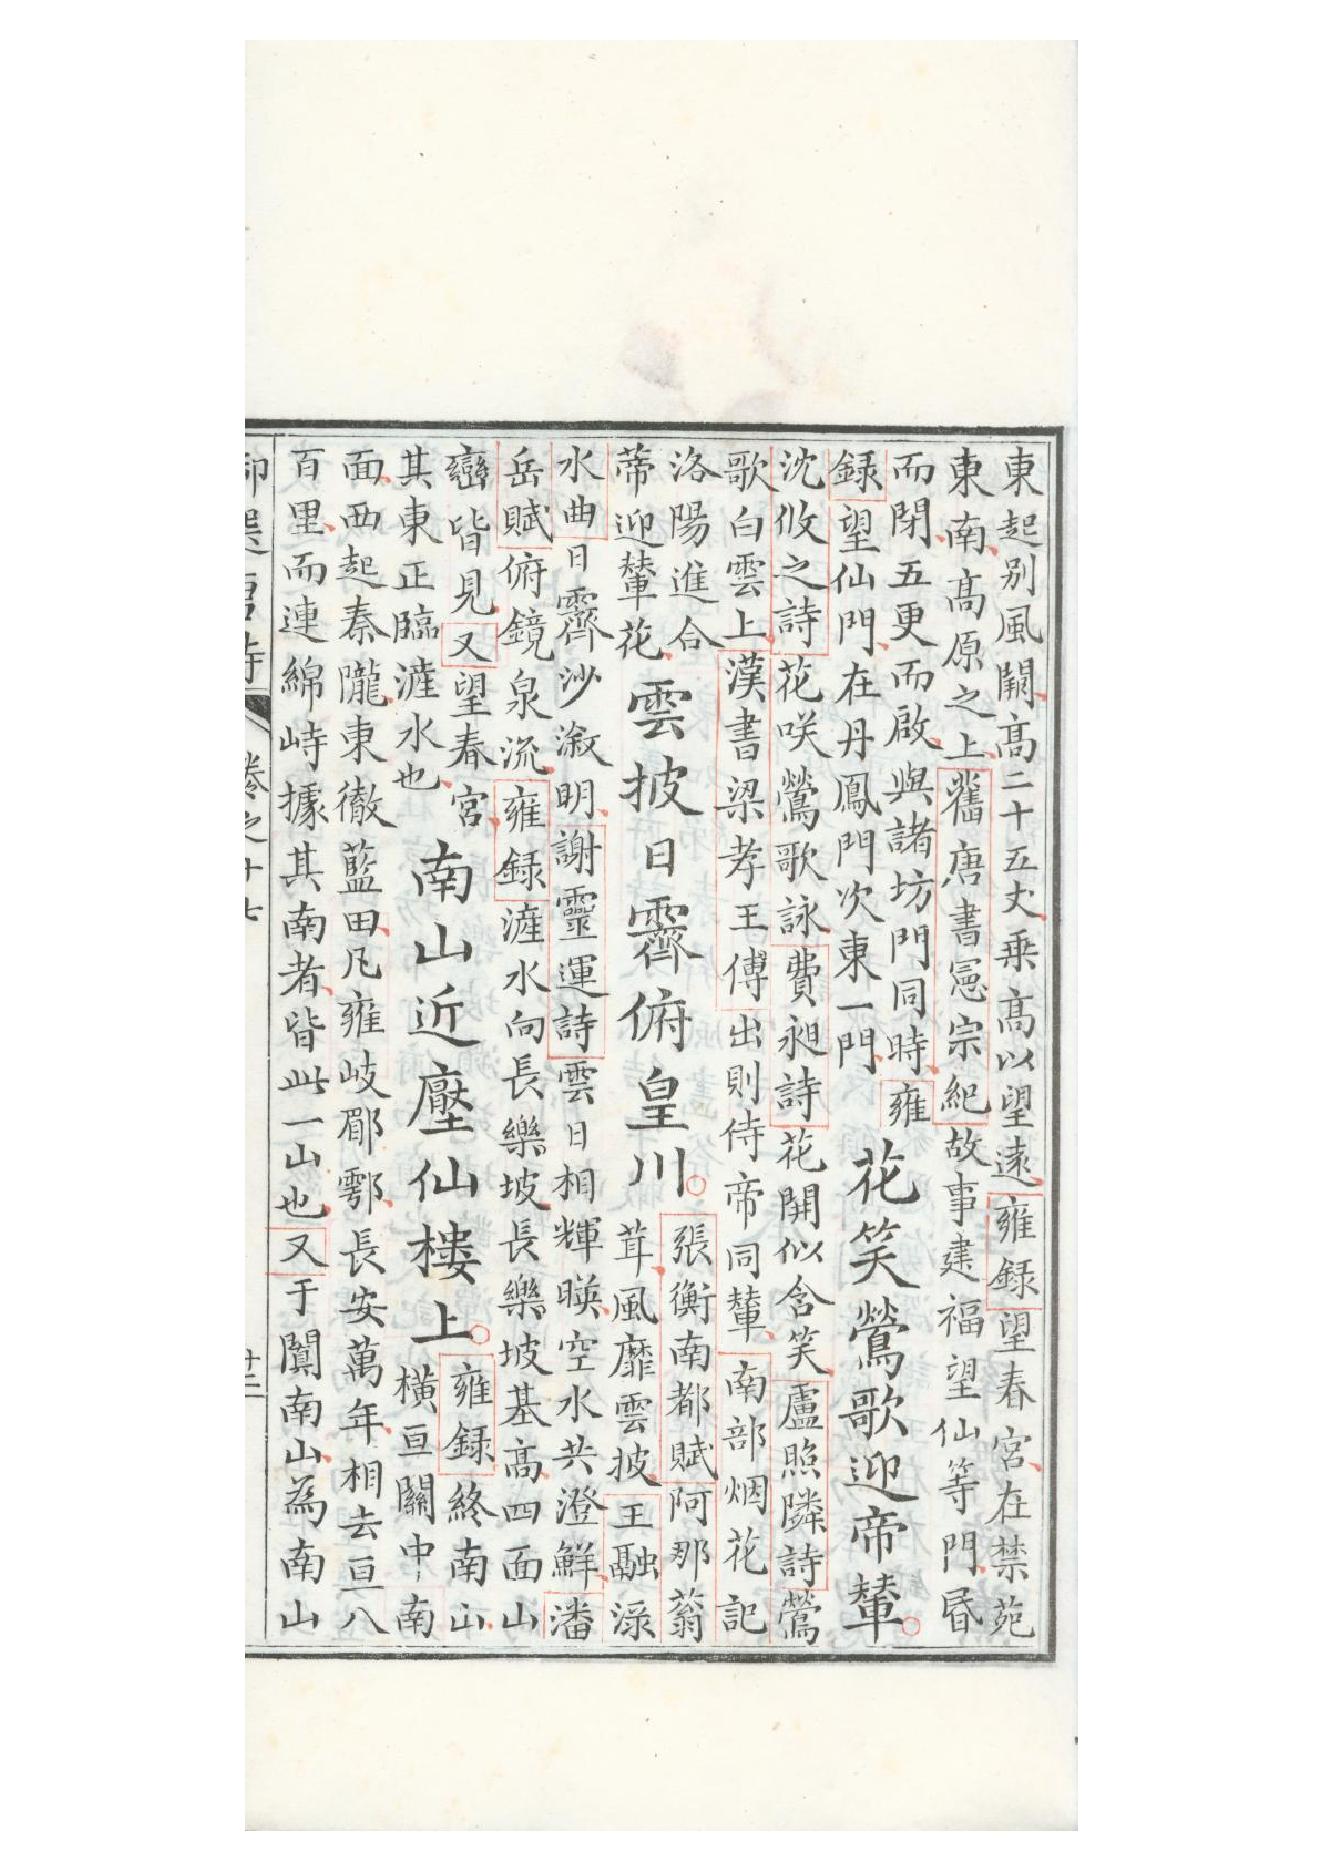 東起別風闕高二十五丈乗高以望遠雍録望春宮在禁苑
東南高原之上舊唐書憲宗紀故事建福望仙等門昏
而閉五更而啟與諸坊門同時雍
録望仙門在丹鳳門次東一門
花笑鶯歌迎帝輦
沈攸之詩花咲鶯歌詠費昶詩花開似含笑盧照隣詩鶯
歌白雲上漢書梁孝王傅出則侍帝同輦南部烟花記
洛陽進合
蒂迎輦花
雲披日霽俯皇川
張衡南都賦阿那蓊
茸風靡雲披王融淥
水曲日霽沙漵明謝靈運詩雲日相輝暎空水共澄鮮潘
岳賦俯鏡泉流雍録滻水向長樂坡長樂坡基高四面山
巒皆見又望春宮
其東正臨滻水也
南山近壓仙樓上
雍録終南山
橫亘關中南
面西起秦隴東徹藍田凡雍岐郿鄠長安萬年相去亘八
百里而連綿峙據其南者皆此一山也又于闐南山為南山
卷之十七